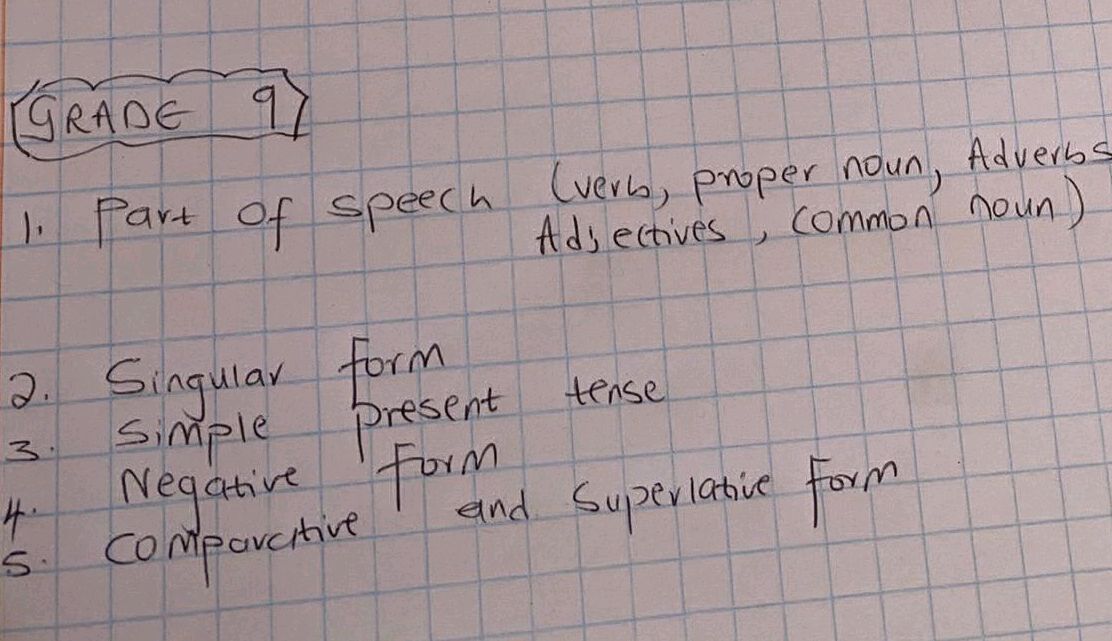 GRADE 9
1. Part of speech (verb, proper noun, Adverbs
Adjectives, common noun)
2. Singular form
3. Simple present tense
4. Negative form
5. Comparative and Superlative form